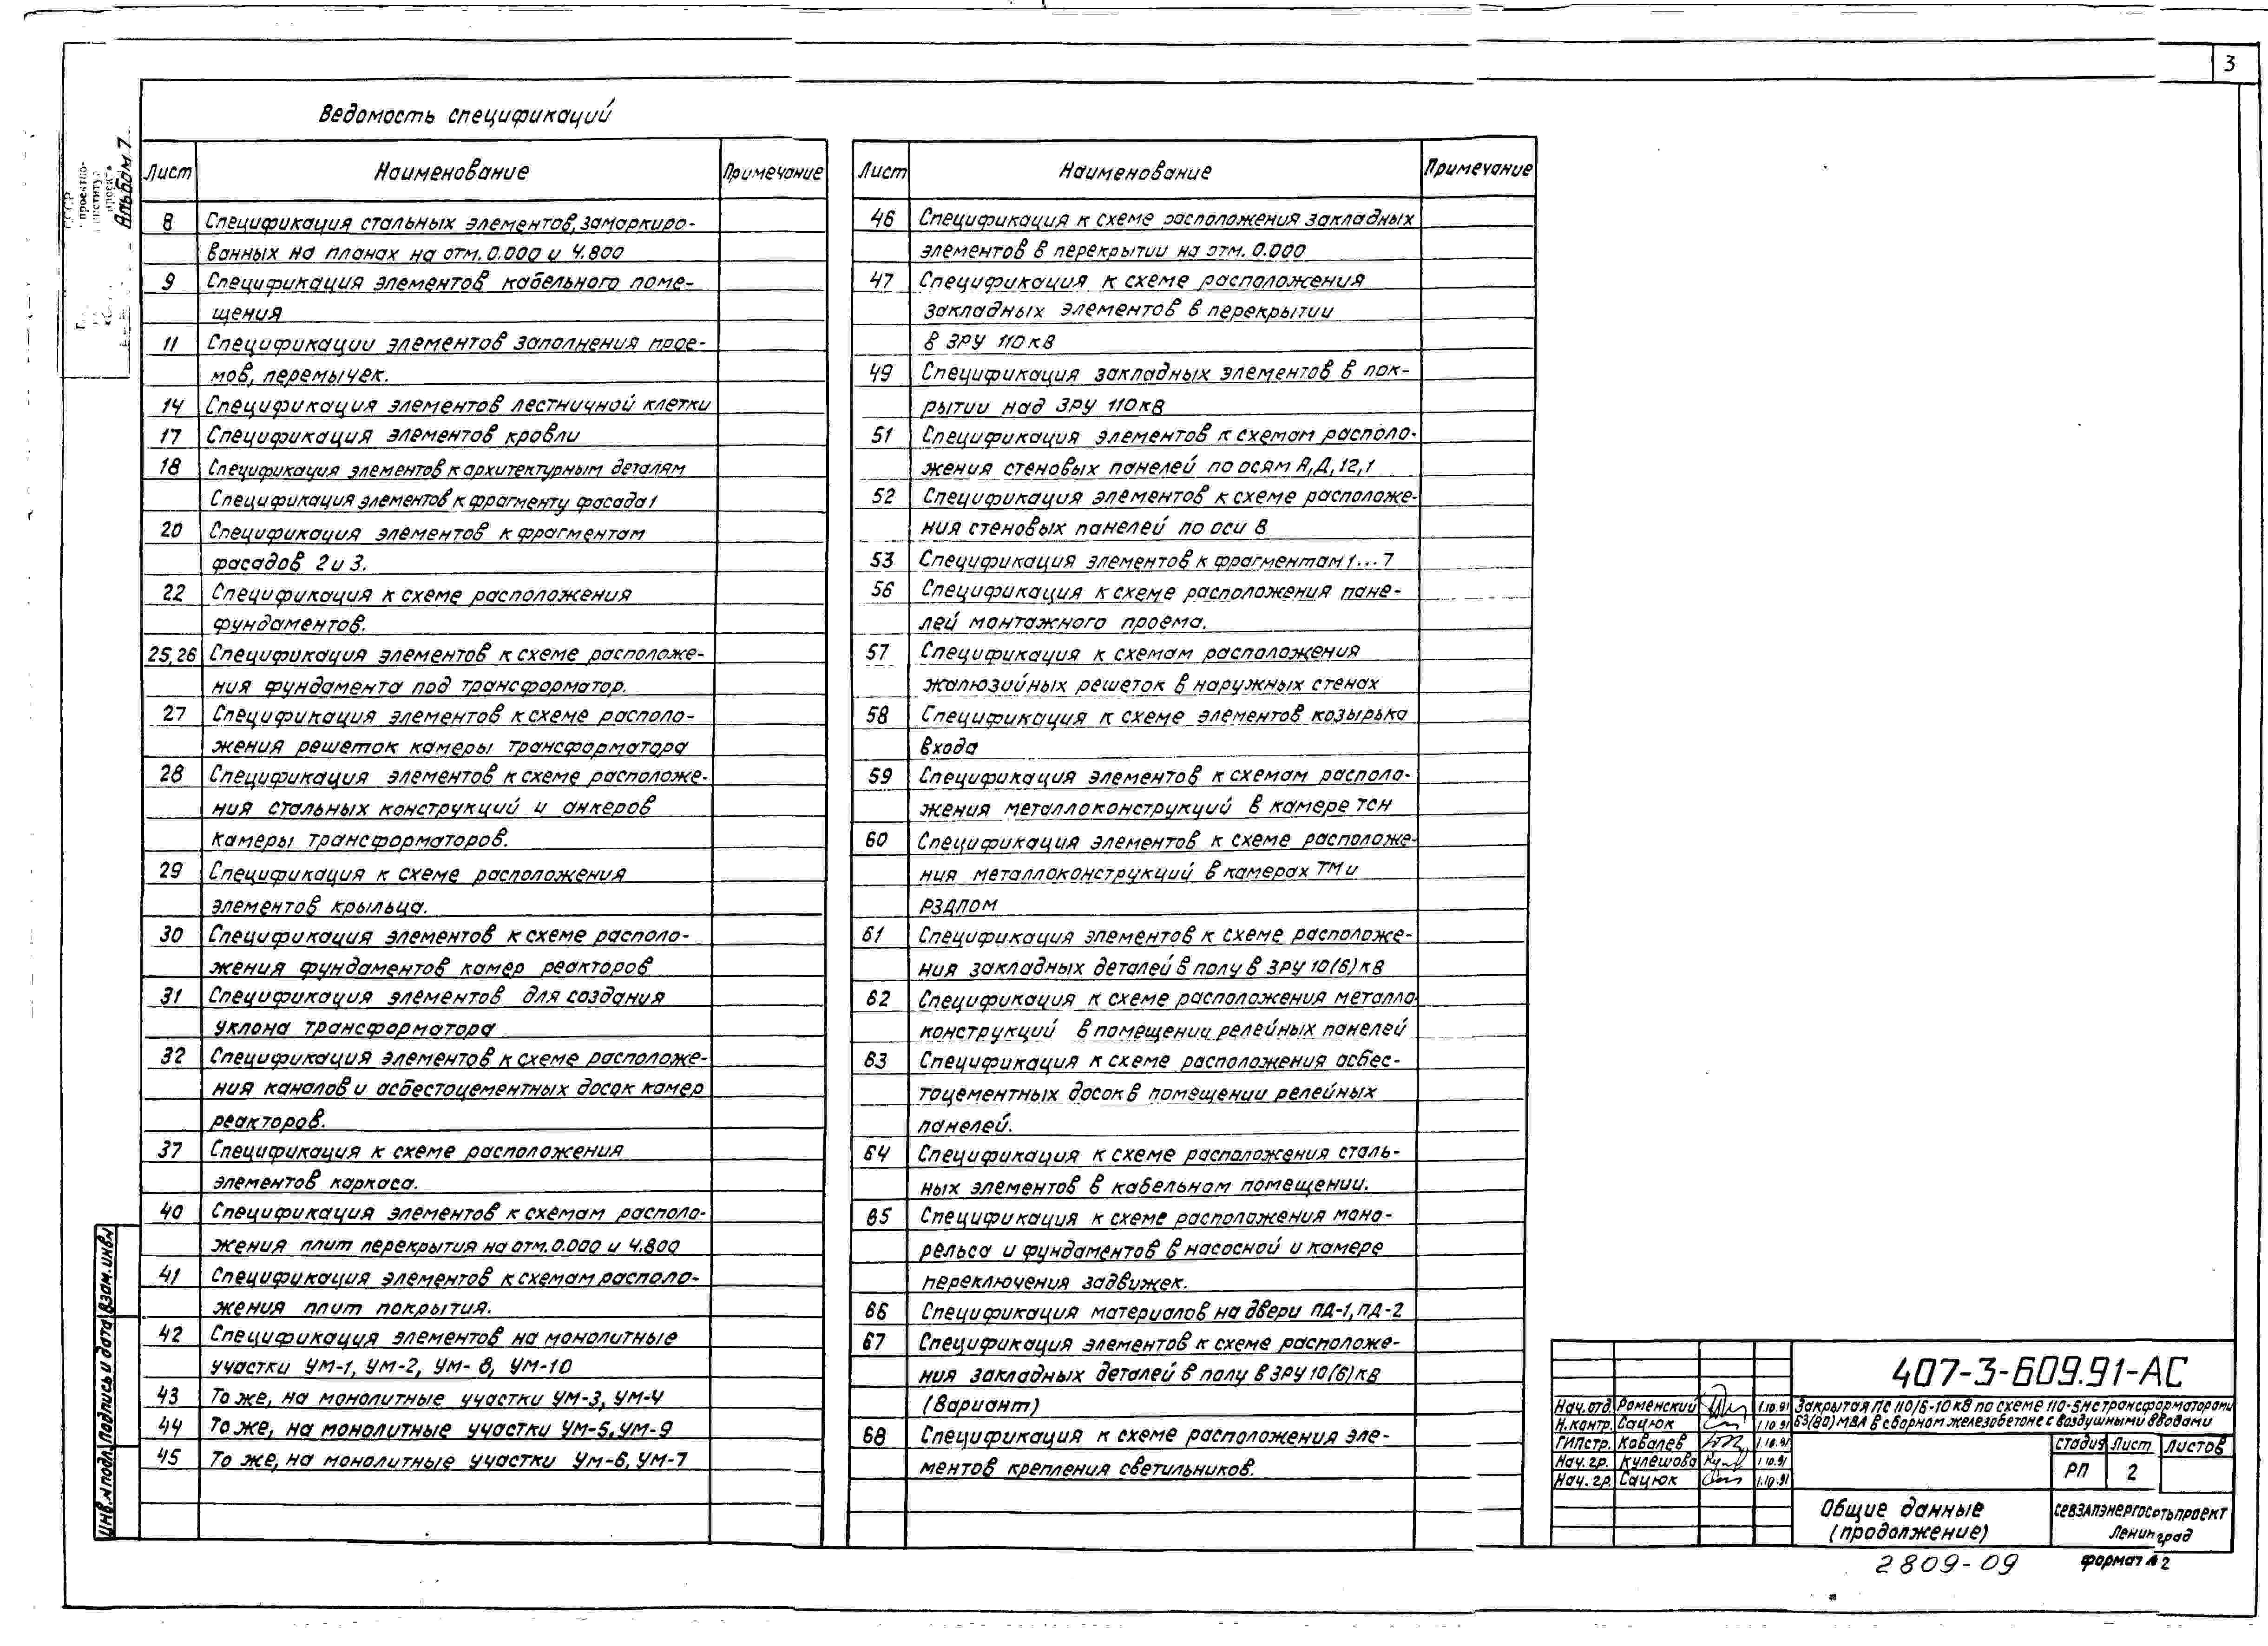 3
Альбом 7
Ведомость спецификаций
Лист Наименование Примечание
8 Спецификация стальных элементов, замаркиро-
ванных на планах на отм. 0.000 и 4.800
9 Спецификация элементов кабельного поме-
щения
11 Спецификации элементов заполнения прое-
мов, перемычек.
14 Спецификация элементов лестничной клетки
17 Спецификация элементов кровли
18 Спецификация элементов к архитектурным деталям
Спецификация элементов к фрагменту фасада 1
20 Спецификация элементов к фрагментам
фасадов 2 и 3.
22 Спецификация к схеме расположения
фундаментов.
25,26 Спецификация элементов к схеме расположе-
ния фундамента под трансформатор.
27 Спецификация элементов к схеме располо-
жения решеток камеры трансформатора
28 Спецификация элементов к схеме расположе-
ния стальных конструкций и анкеров
камеры трансформаторов.
29 Спецификация к схеме расположения
элементов крыльца.
30 Спецификация элементов к схеме располо-
жения фундаментов камер реакторов
31 Спецификация элементов для создания
уклона трансформатора
32 Спецификация элементов к схеме расположе-
ния каналов и асбестоцементных досок камер
реакторов.
37 Спецификация к схеме расположения
элементов каркаса.
40 Спецификация элементов к схемам располо-
жения плит перекрытия на отм. 0.000 и 4.800
41 Спецификация элементов к схемам располо-
жения плит покрытия.
42 Спецификация элементов на монолитные
участки УМ-1, УМ-2, УМ-8, УМ-10
43 То же, на монолитные участки УМ-3, УМ-4
44 То же, на монолитные участки УМ-5, УМ-9
45 То же, на монолитные участки УМ-6, УМ-7
Лист Наименование Примечание
46 Спецификация к схеме расположения закладных
элементов в перекрытии на отм. 0.000
47 Спецификация к схеме расположения
закладных элементов в перекрытии
в ЗРУ 110 кВ
49 Спецификация закладных элементов в пок-
рытии над ЗРУ 110 кВ
51 Спецификация элементов к схемам располо-
жения стеновых панелей по осям А, Д, 12, 1
52 Спецификация элементов к схеме расположе-
ния стеновых панелей по оси В
53 Спецификация элементов к фрагментам 1...7
56 Спецификация к схеме расположения пане-
лей монтажного проема.
57 Спецификация к схемам расположения
жалюзийных решеток в наружных стенах
58 Спецификация к схеме элементов козырька
входа
59 Спецификация элементов к схемам располо-
жения металлоконструкций в камере ТСН
60 Спецификация элементов к схеме расположе-
ния металлоконструкций в камерах ТМ и
РЗДПОМ
61 Спецификация элементов к схеме расположе-
ния закладных деталей в полу в ЗРУ 10(6) кВ
62 Спецификация к схеме расположения металло
конструкций в помещении релейных панелей
63 Спецификация к схеме расположения асбес-
тоцементных досок в помещении релейных
панелей.
64 Спецификация к схеме расположения сталь-
ных элементов в кабельном помещении.
65 Спецификация к схеме расположения моно-
рельса и фундаментов в насосной и камере
переключения задвижек.
66 Спецификация материалов на двери ПД-1, ПД-2
67 Спецификация элементов к схеме расположе-
ния закладных деталей в полу в ЗРУ 10(6) кВ
(Вариант)
68 Спецификация к схеме расположения эле-
ментов крепления светильников.
Инв. N подл. Подпись и дата Взам. инв N
407-3-609.91-АС
Нач. отд Роменский 1.10.91
Н. контр. Сацюк 1.10.91
ГИПстр. Ковалев 1.10.91
Нач. гр. Кулешова 1.10.91
Нач. гр. Сацюк 1.10.91
Закрытая ПС 110/6-10 кВ по схеме 110-5Н с трансформаторами
63(80) МВА в сборном железобетоне с воздушными вводами
Стадия Лист Листов
РП 2
Общие данные
(продолжение)
Севзапэнергосетьпроект
Ленинград
2809-09
формат А2